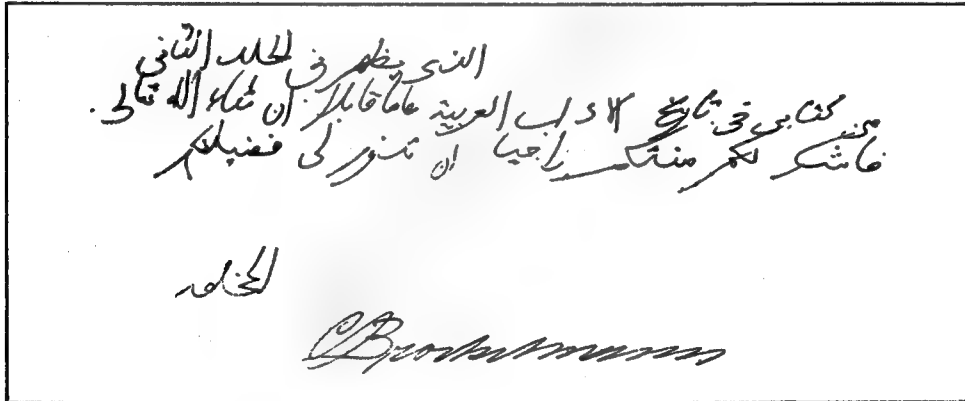 الذي يظهر في الجلد الثاني
من كتابي في تاريخ الآداب العربية عاما قابلا ان شاء الله تعالى.
فاشكر لكم منتكم راجيا ان تدوم لي فضيلتكم
المخلص
C Brockelmann